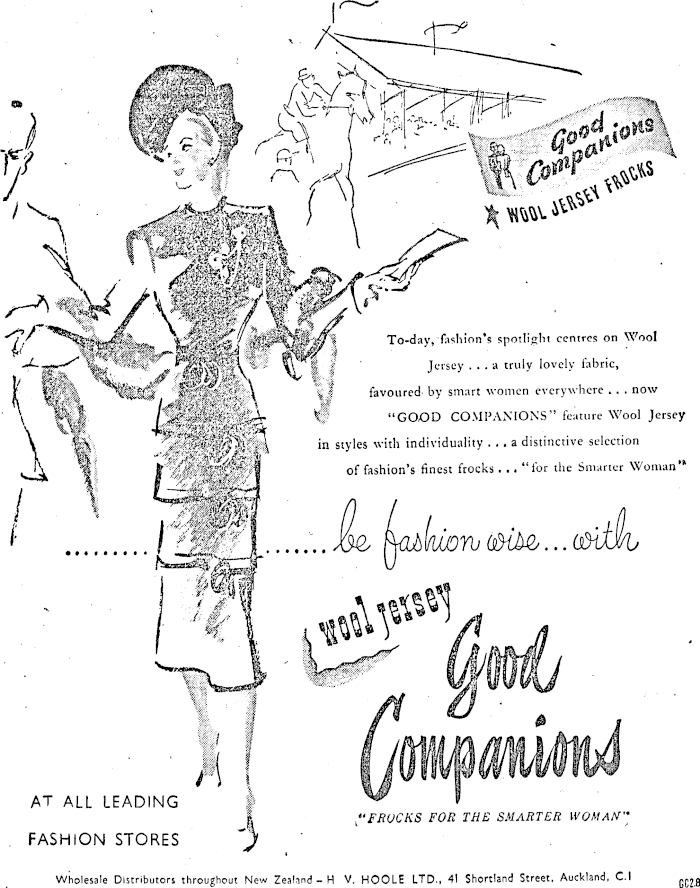 Good
Companions
WOOL JERSEY FROCKS
To-day, fashion's spotlight centres on Wool
Jersey ... a truly lovely fabric,
favoured by smart women everywhere ... now
"GOOD COMPANIONS" feature Wool Jersey
in styles with individuality ... a distinctive selection
of fashion's finest frocks ... "for the Smarter Woman"
be fashion wise... with
wool jersey
Good
Companions
"FROCKS FOR THE SMARTER WOMAN"
AT ALL LEADING
FASHION STORES
Wholesale Distributors throughout New Zealand – H V. HOOLE LTD., 41 Shortland Street, Auckland, C.1